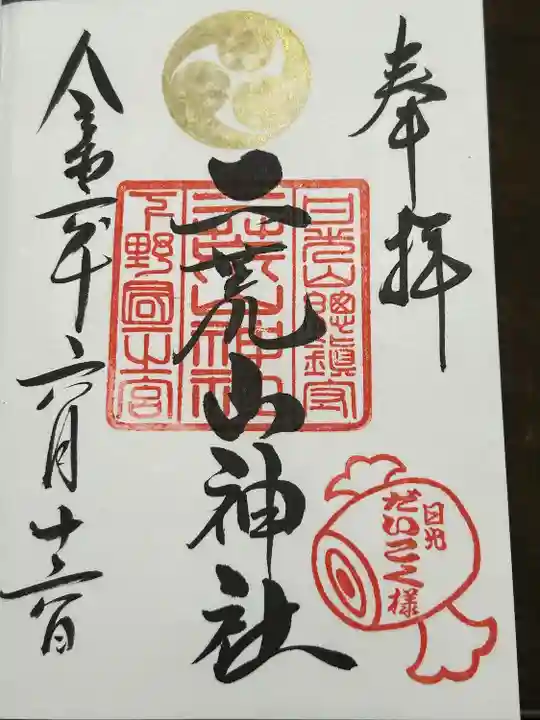 奉拝
日光山總鎮守
二荒山神社
二荒山神社
下野國一宮
日光
だいこく様
令和二年六月十三日